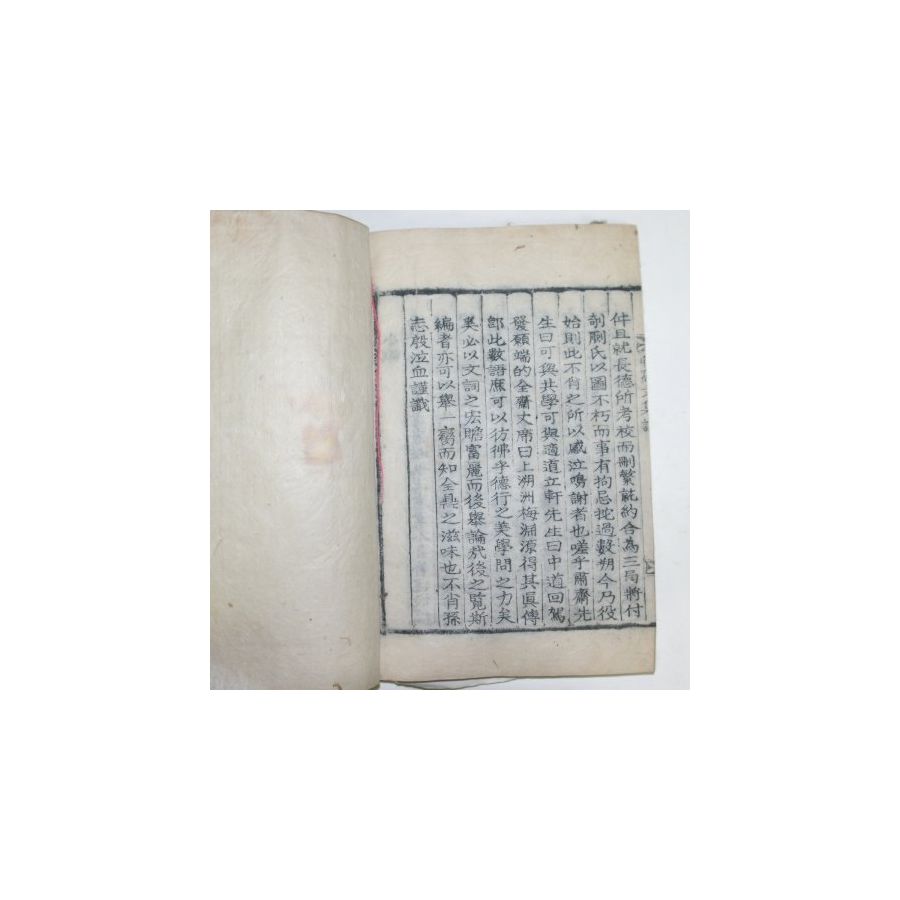 件且就長德所考校而刪繁就約合為三局將付
剞劂氏以圖不朽而事有拘忌挖過數朔今乃役
始則此不肖之所以感泣鳴謝者也嗟乎爾齋先
生曰可與共學可與適道立軒先生曰中道回駕
發願端的全齋丈席曰上溯洲梅淵源得其眞傳
郎此數語庶可以彷彿乎德行之美學問之力矣
奚必以文詞之宏贍富麗而後舉論㦲後之覽斯
編者亦可以舉一臠而知全鼎之滋味也不肖孫
志殷泣血謹識